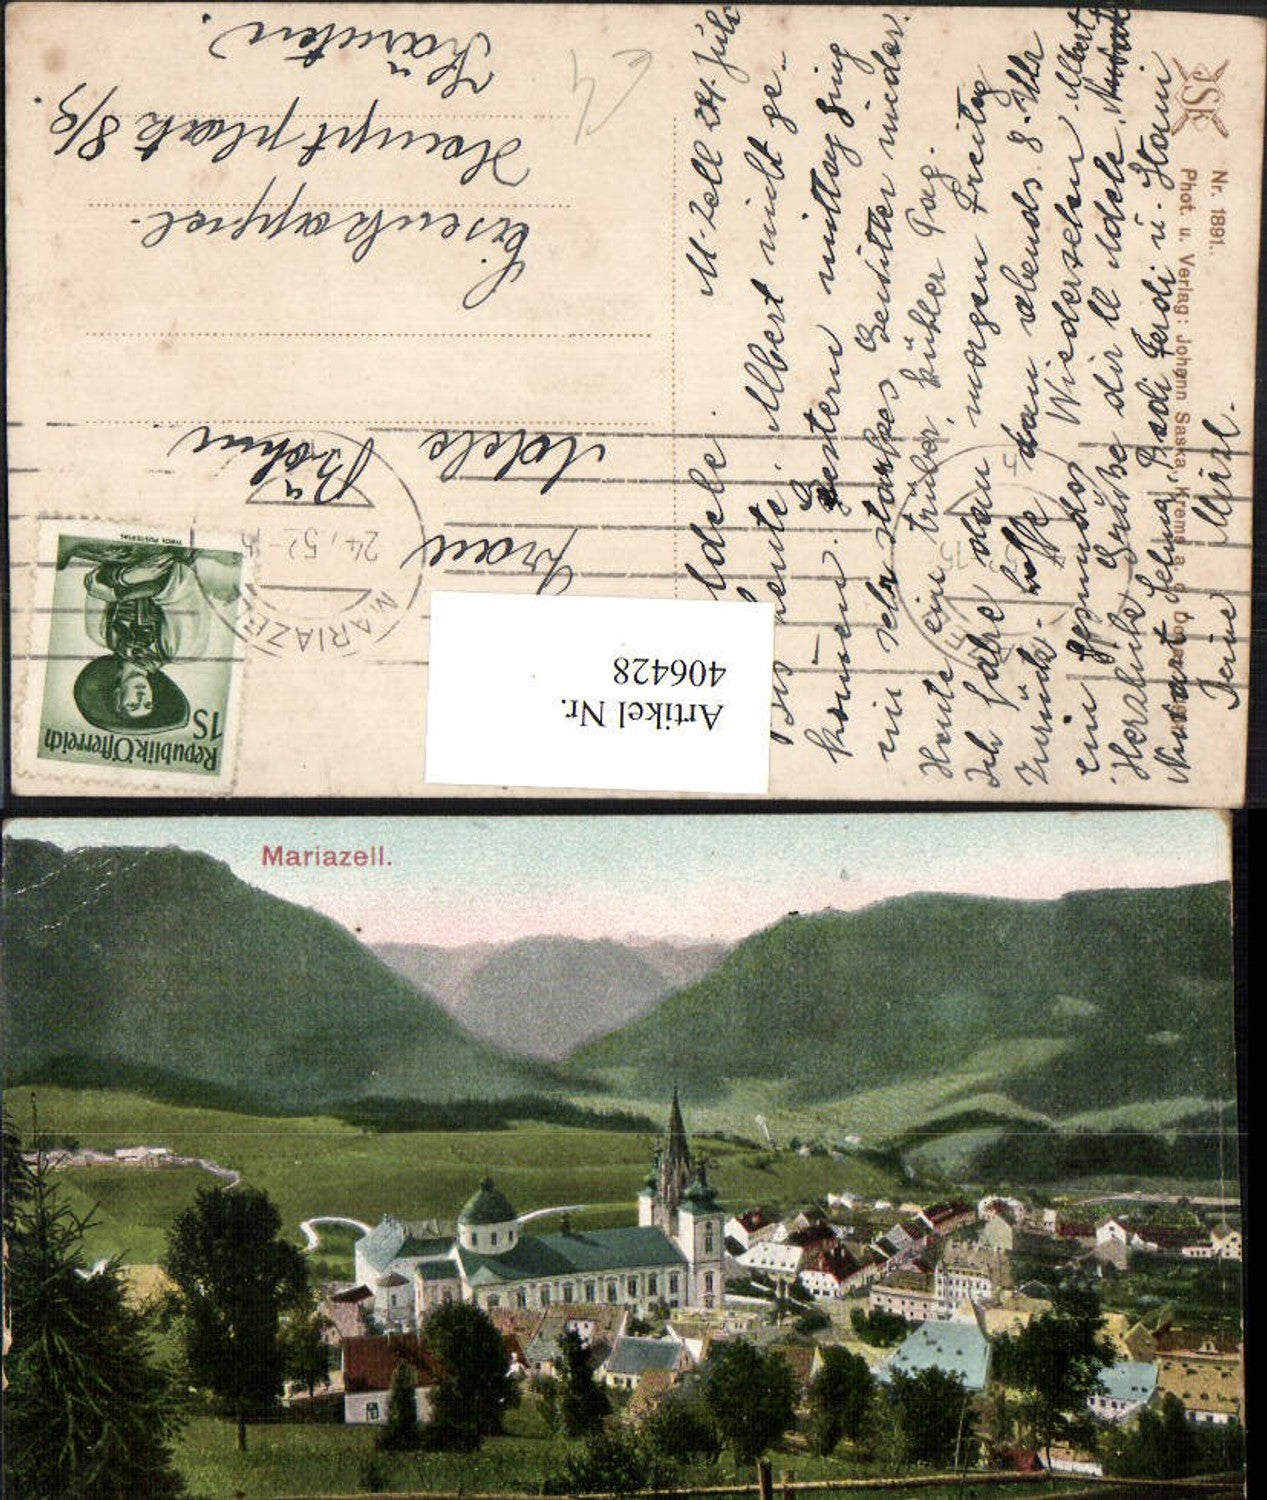 M-Zell 24. Juli
Adele.
Bis heute, Albert nicht ge-
kommen. Gestern mittag ging
ein sehr starkes Gewitter nieder.
Heute ein trüber, kühler Tag.
Ich fahre dann morgen Freitag
zurück. hoffe dann abends 8 Uhr
ein gesundes Wiedersehen
Herzliche Grüße dir ll Adele,
Ferdi u. Stani
Deine Mizl.
Nr. 1891.
Phot. u. Verlag: Johann Saska, Krems a. d. Donau
Frau
Adele Böhm
Eisenkappel
Hauptplatz 8/9.
Kärnten.
Republik Österreich
1S
TIROL PUSTERTAL
MARIAZELL
24. 52-
Artikel Nr.
406428
Mariazell.